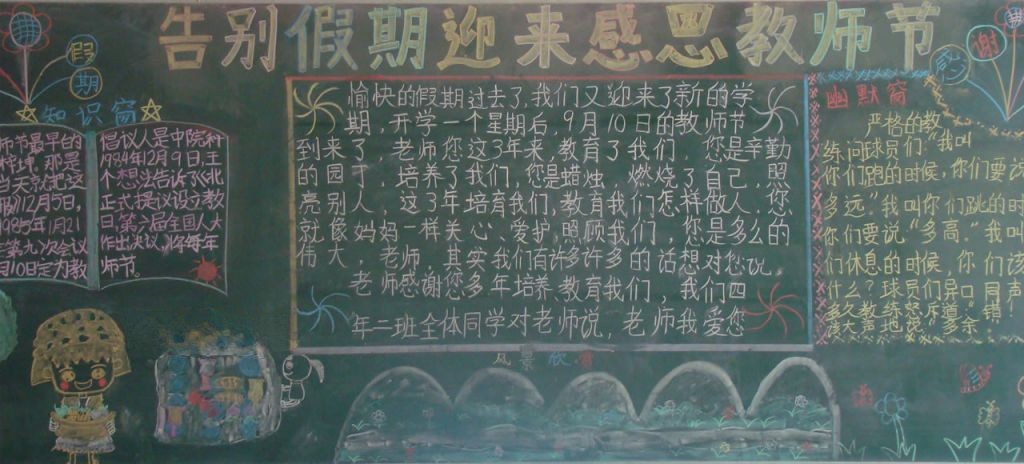 告别假期迎来感恩教师节
假
期
知识窗
师节最早的
当天就把这
报》12月5日,
1985年1月21
第九次会议
月10日定为教
倡议人是中院科
1984年12月9日,王
个想法告诉了《北
正式提议设立教
日,第六届全国人大
作出决议,将每年
师节。
愉快的假期过去了,我们又迎来了新的学
期,开学一个星期后,9月10日的教师节
到来了,老师您这3年来,教育了我们,您是辛勤
的园丁,培养了我们,您是蜡烛,燃烧了自己,照
亮别人,这3年培育我们,教育我们怎样做人,您
就像妈妈一样关心、爱护、照顾我们,您是多么的
伟大,老师,其实我们有许多许多的话想对您说。
老师感谢您多年培养、教育我们,我们四
年二班全体同学对老师说,老师我爱您
风景欣赏
谢
幽默窗
严格的教
练问球员们:“我叫
你们跑的时候,你们要说
多远。”我叫你们跳的时
你们要说“多高。”我叫
们休息的时候,你们该
什么?球员们异口同声